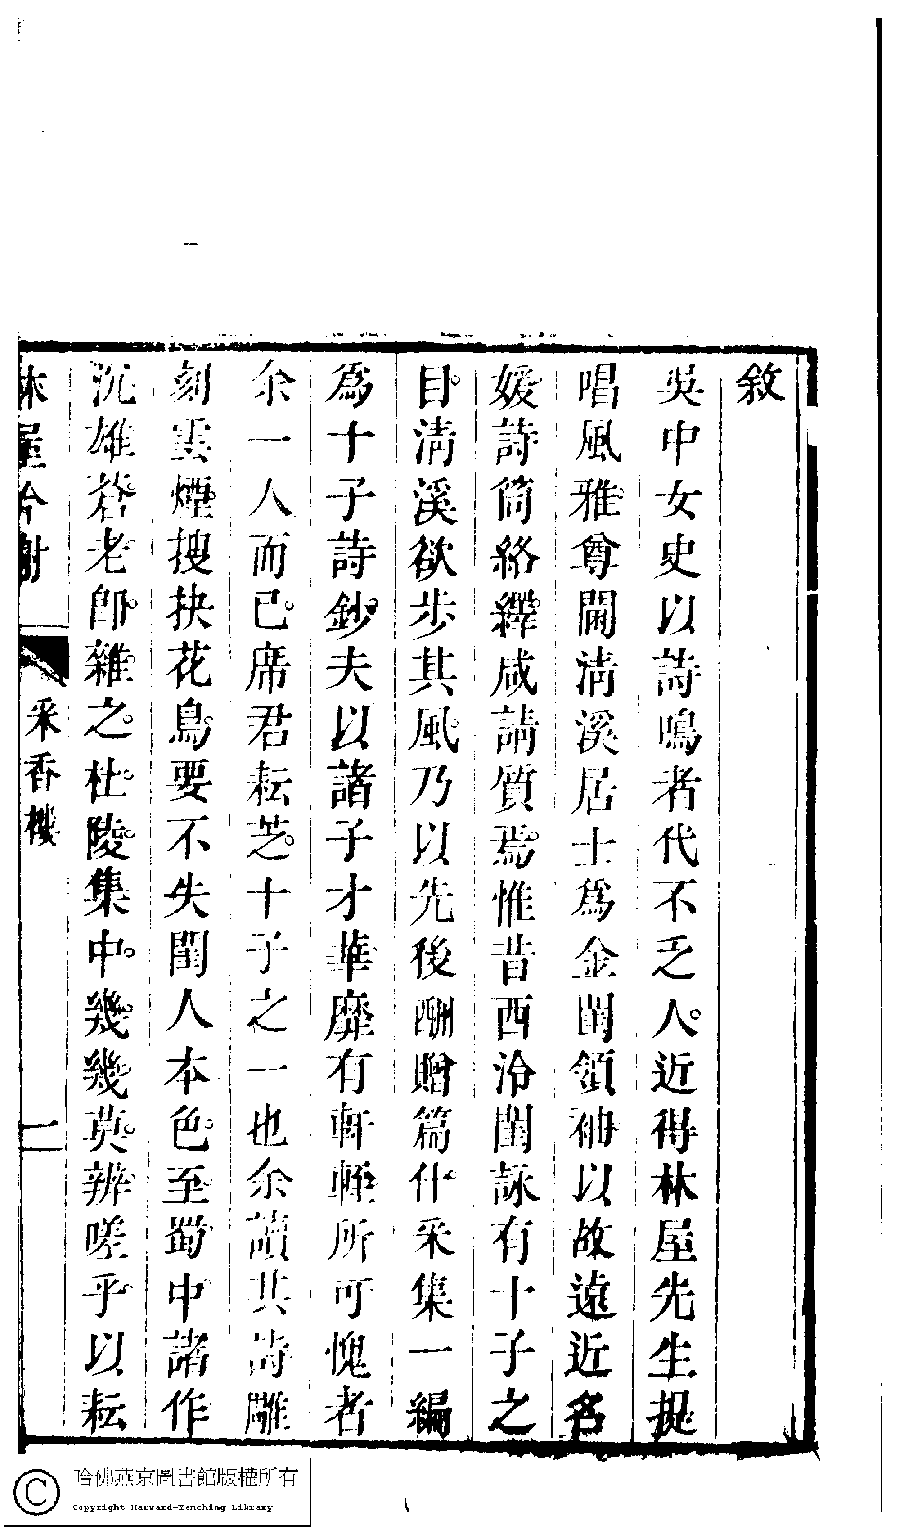 敘
吳中女史以詩鳴者代不乏人近得林屋先生提
唱風雅尊閫清溪居士為金閨領袖以故遠近名
媛詩筒絡繹咸請質焉惟昔西泠閨詠有十子之
目清溪欲步其風乃以先後酬贈篇什采集一編
為十子詩鈔夫以諸子才華靡有軒輊所可愧者
余一人而已席君耘芝十子之一也余讀其詩雕
刻雲煙搜抉花鳥要不失閨人本色至蜀中諸作
沉雄蒼老即雜之杜陵集中幾幾莫辨嗟乎以耘
林屋吟榭
采香樓
一
哈佛燕京圖書館版權所有
Copyright Harvard-Yenching Library